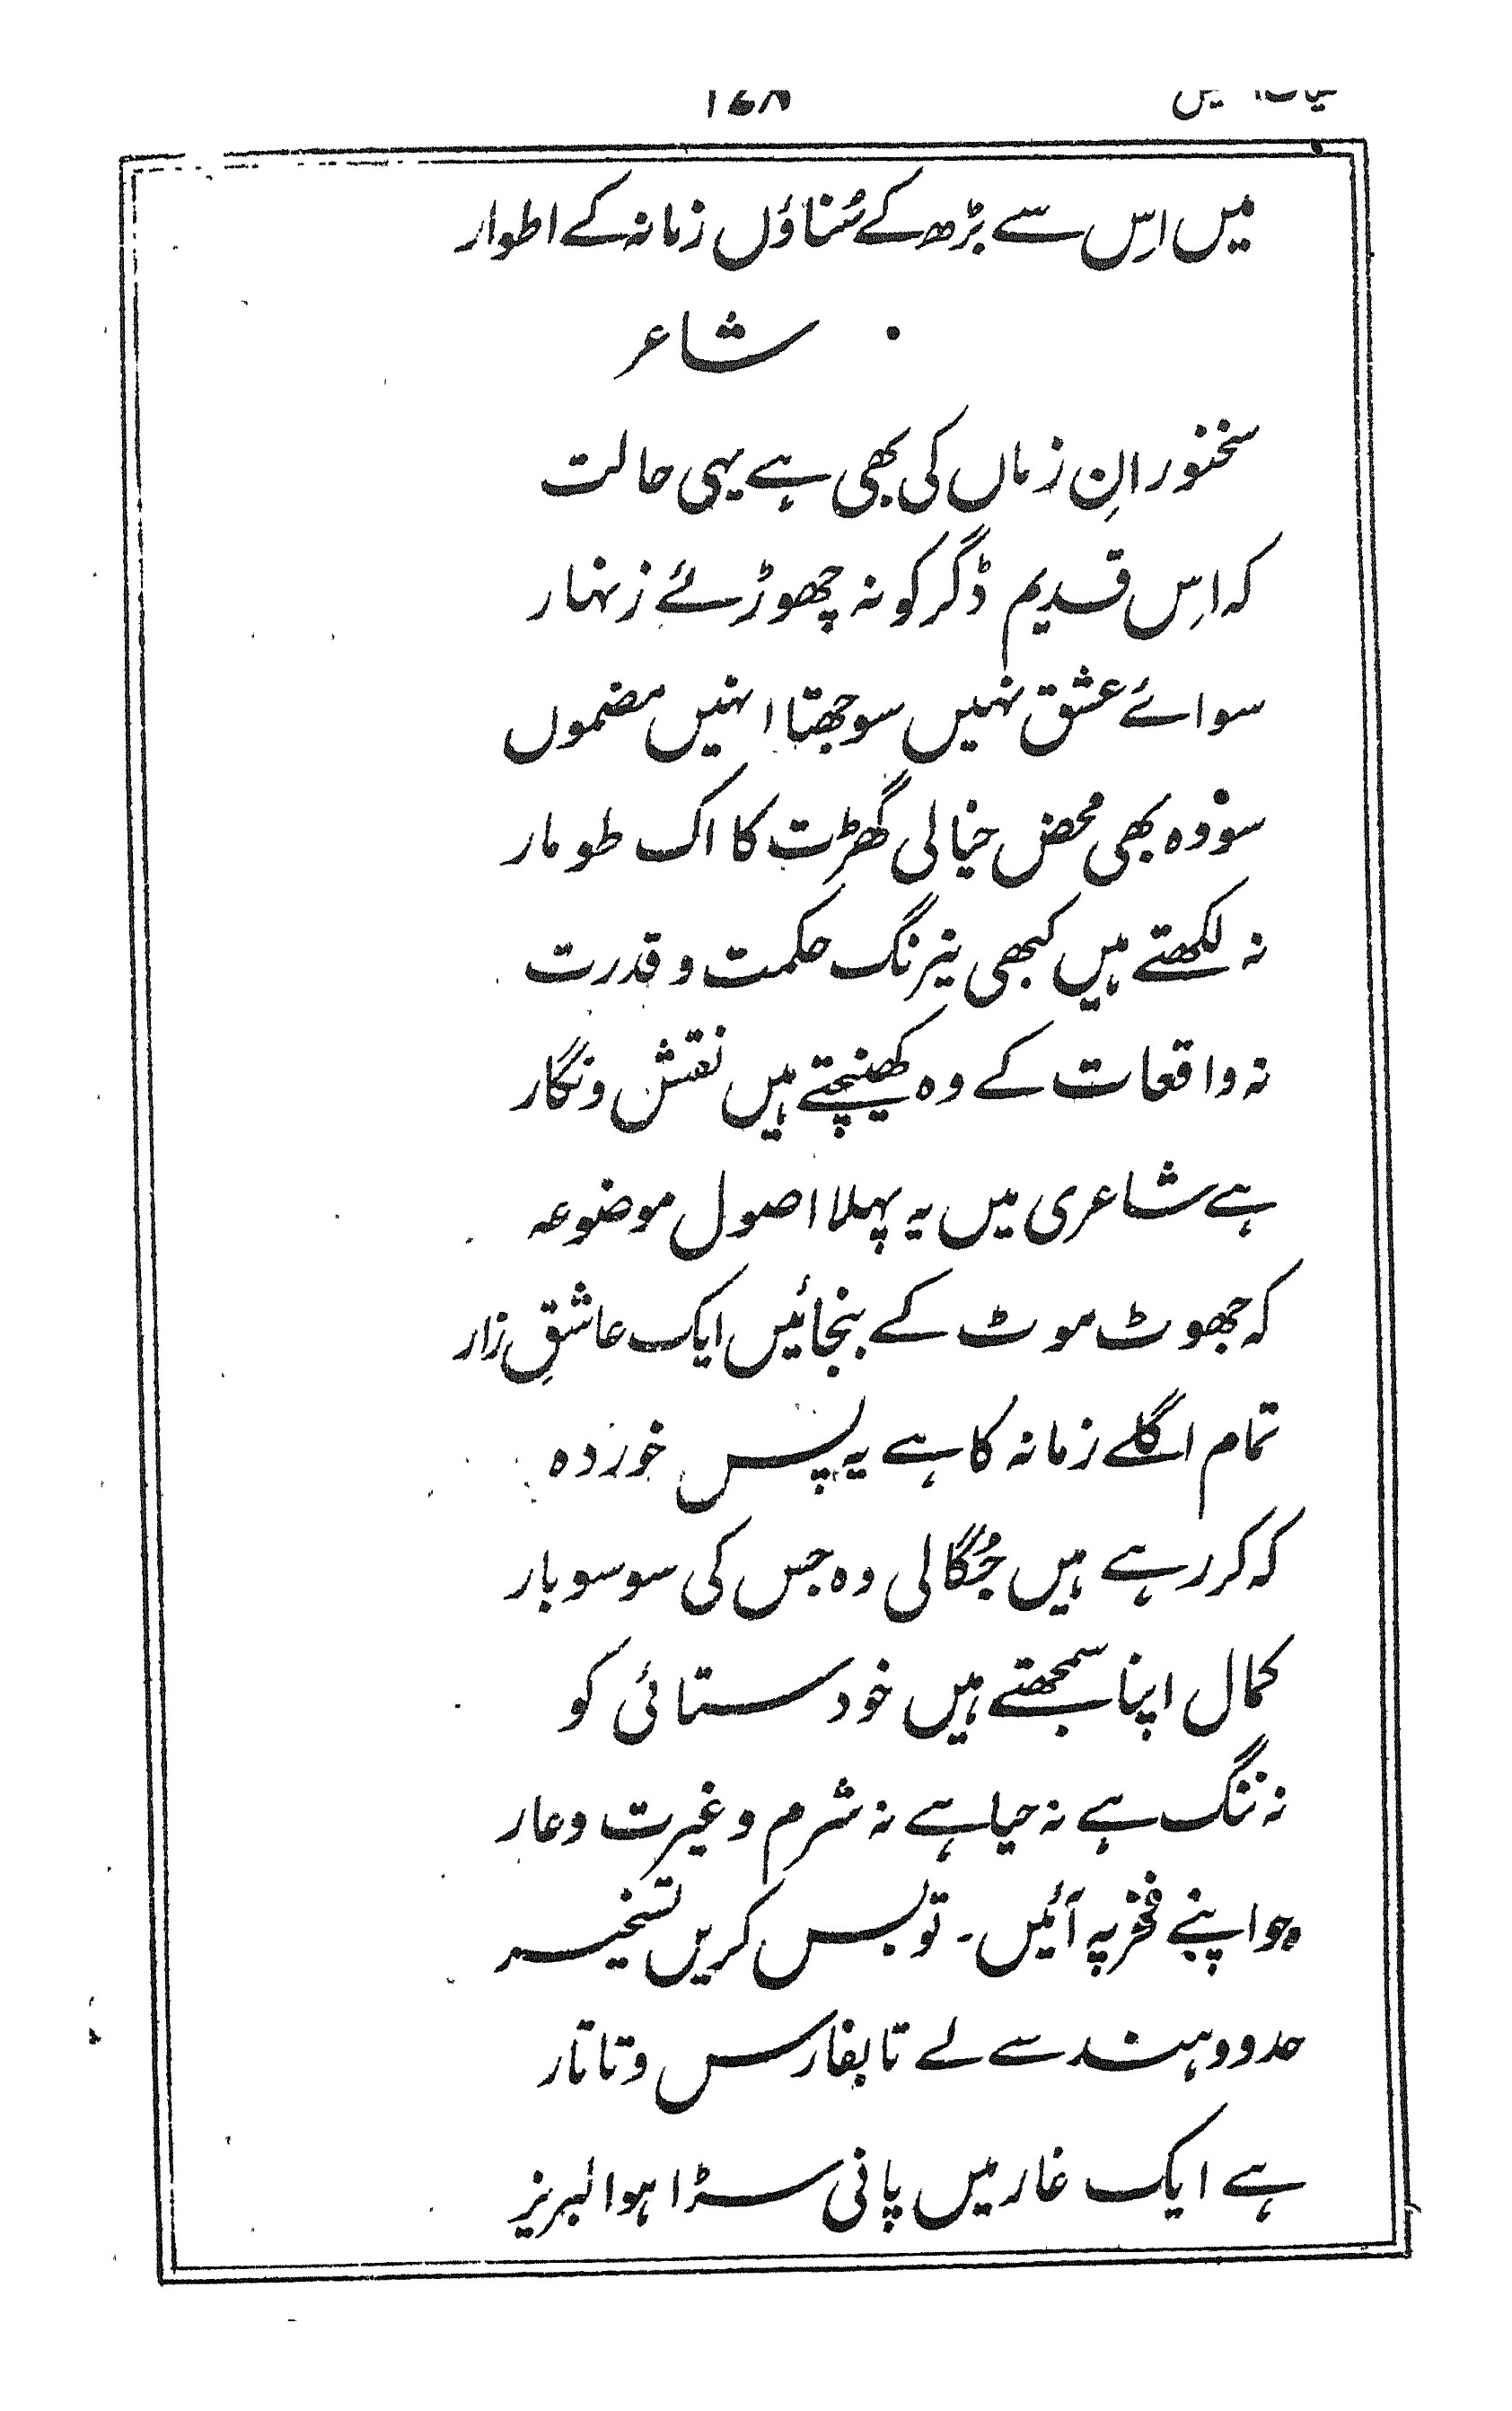 ۱۶۸
میں اِس سے بڑھ کے سُناؤں زمانہ کے اطوار
شاعر
سخنورانِ زماں کی بھی ہے یہی حالت
کہ اِس قدیم ڈگر کو نہ چھوڑئے زنہار
سوائے عشق نہیں سوجھتا انہیں مضموں
سو وہ بھی محض خیالی گھڑت کا اک طومار
نہ لکھتے ہیں کبھی نیرنگ حکمت و قدرت
نہ واقعات کے وہ کھینچتے ہیں نقش و نگار
ہے شاعری میں یہ پہلا اصول موضوعہ
کہ جھوٹ موٹ کے بنجائیں ایک عاشقِ زار
تمام اگلے زمانہ کا ہے یہ پس خوردہ
کہ کر رہے ہیں جُگالی وہ جس کی سو سو بار
کمال اپنا سمجھتے ہیں خود ستائی کو
نہ ننگ ہے نہ حیا ہے نہ شرم و غیرت و عار
جو اپنے فخر پہ آئیں۔ تو بس کریں تسخیر
حدود ہند سے لے تا بفارس و تاتار
ہے ایک غار میں پانی سڑا ہوا لبریز